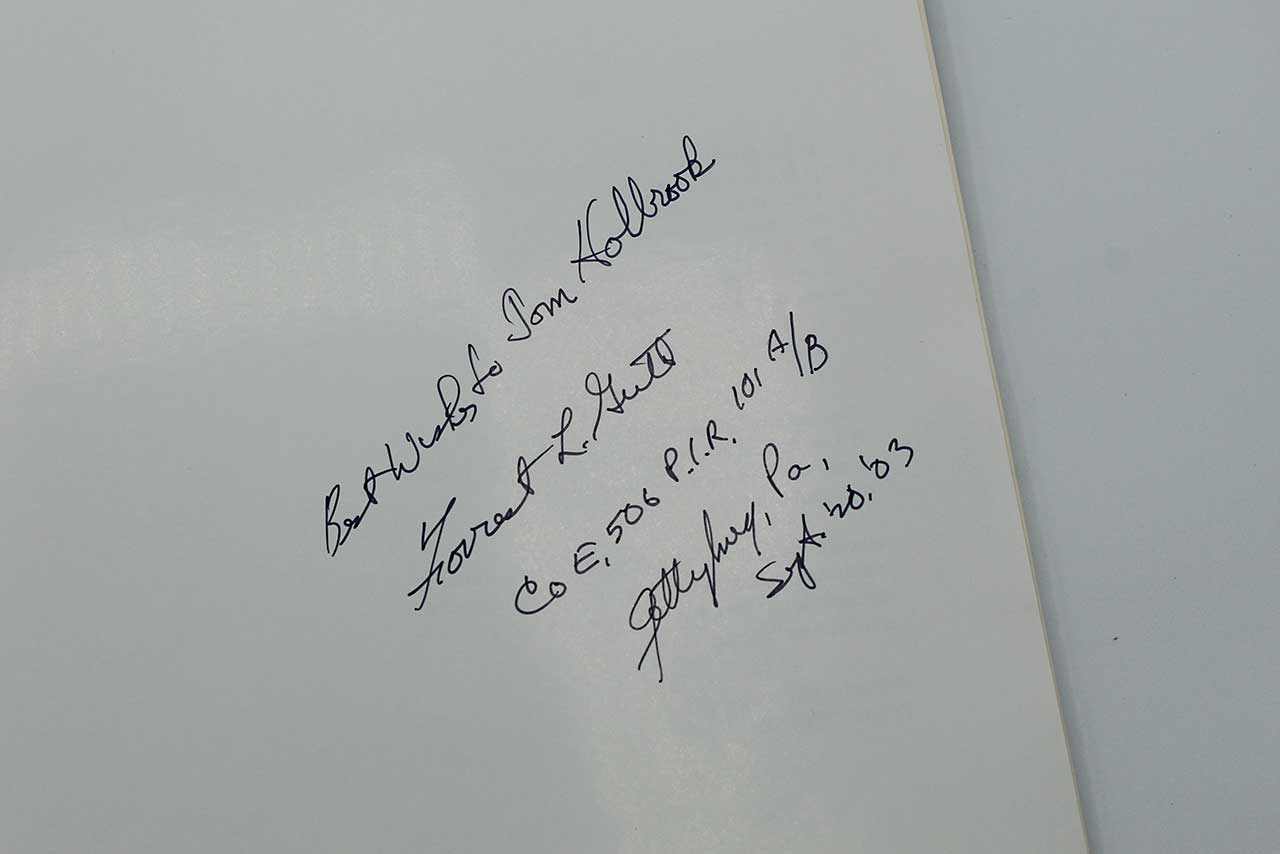 Best Wishes to Tom Holbrook
Forrest L. Guth
Co E, 506 P.I.R. 101 A/B
Gettysburg, Pa,
Sept. 20, '03